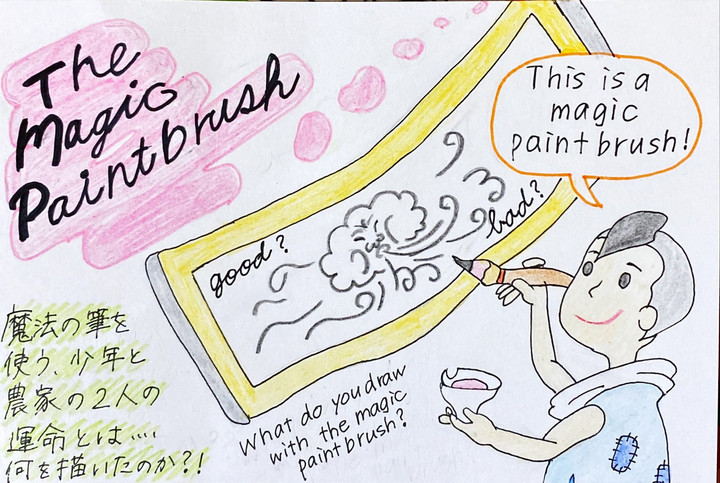 The
Magic
Paintbrush
This is a
magic
paintbrush!
good?
bad?
魔法の筆を
使う、少年と
農家の2人の
運命とは....
何を描いたのか?!
What do you draw
with the magic
paintbrush?